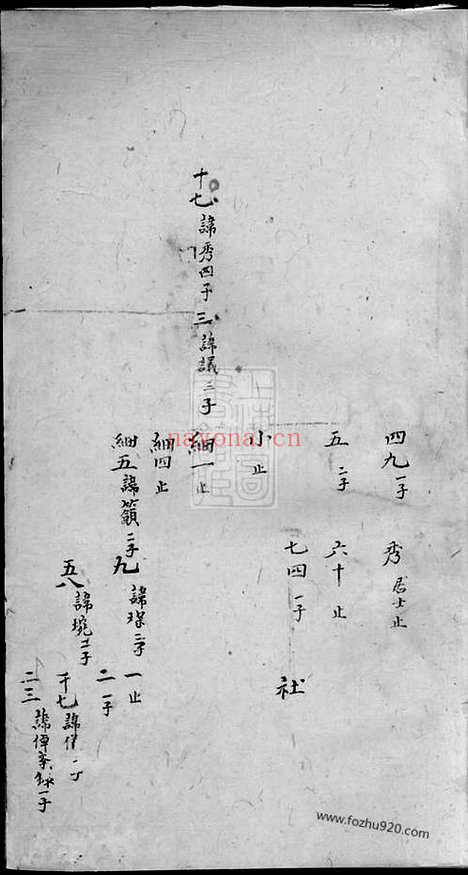 四九 一子 秀 居士止
五 二子 六十 止
七四 一子 社
小 止
十七 諱秀四子 三 諱議 三子 細一 止
細四 止
細五 諱籲 二子 九 諱琛 二子 一 止
二 一子
五八 諱境 二子
千七 諱
二三 諱 一子
nayonal.cn
www.fozhu920.com